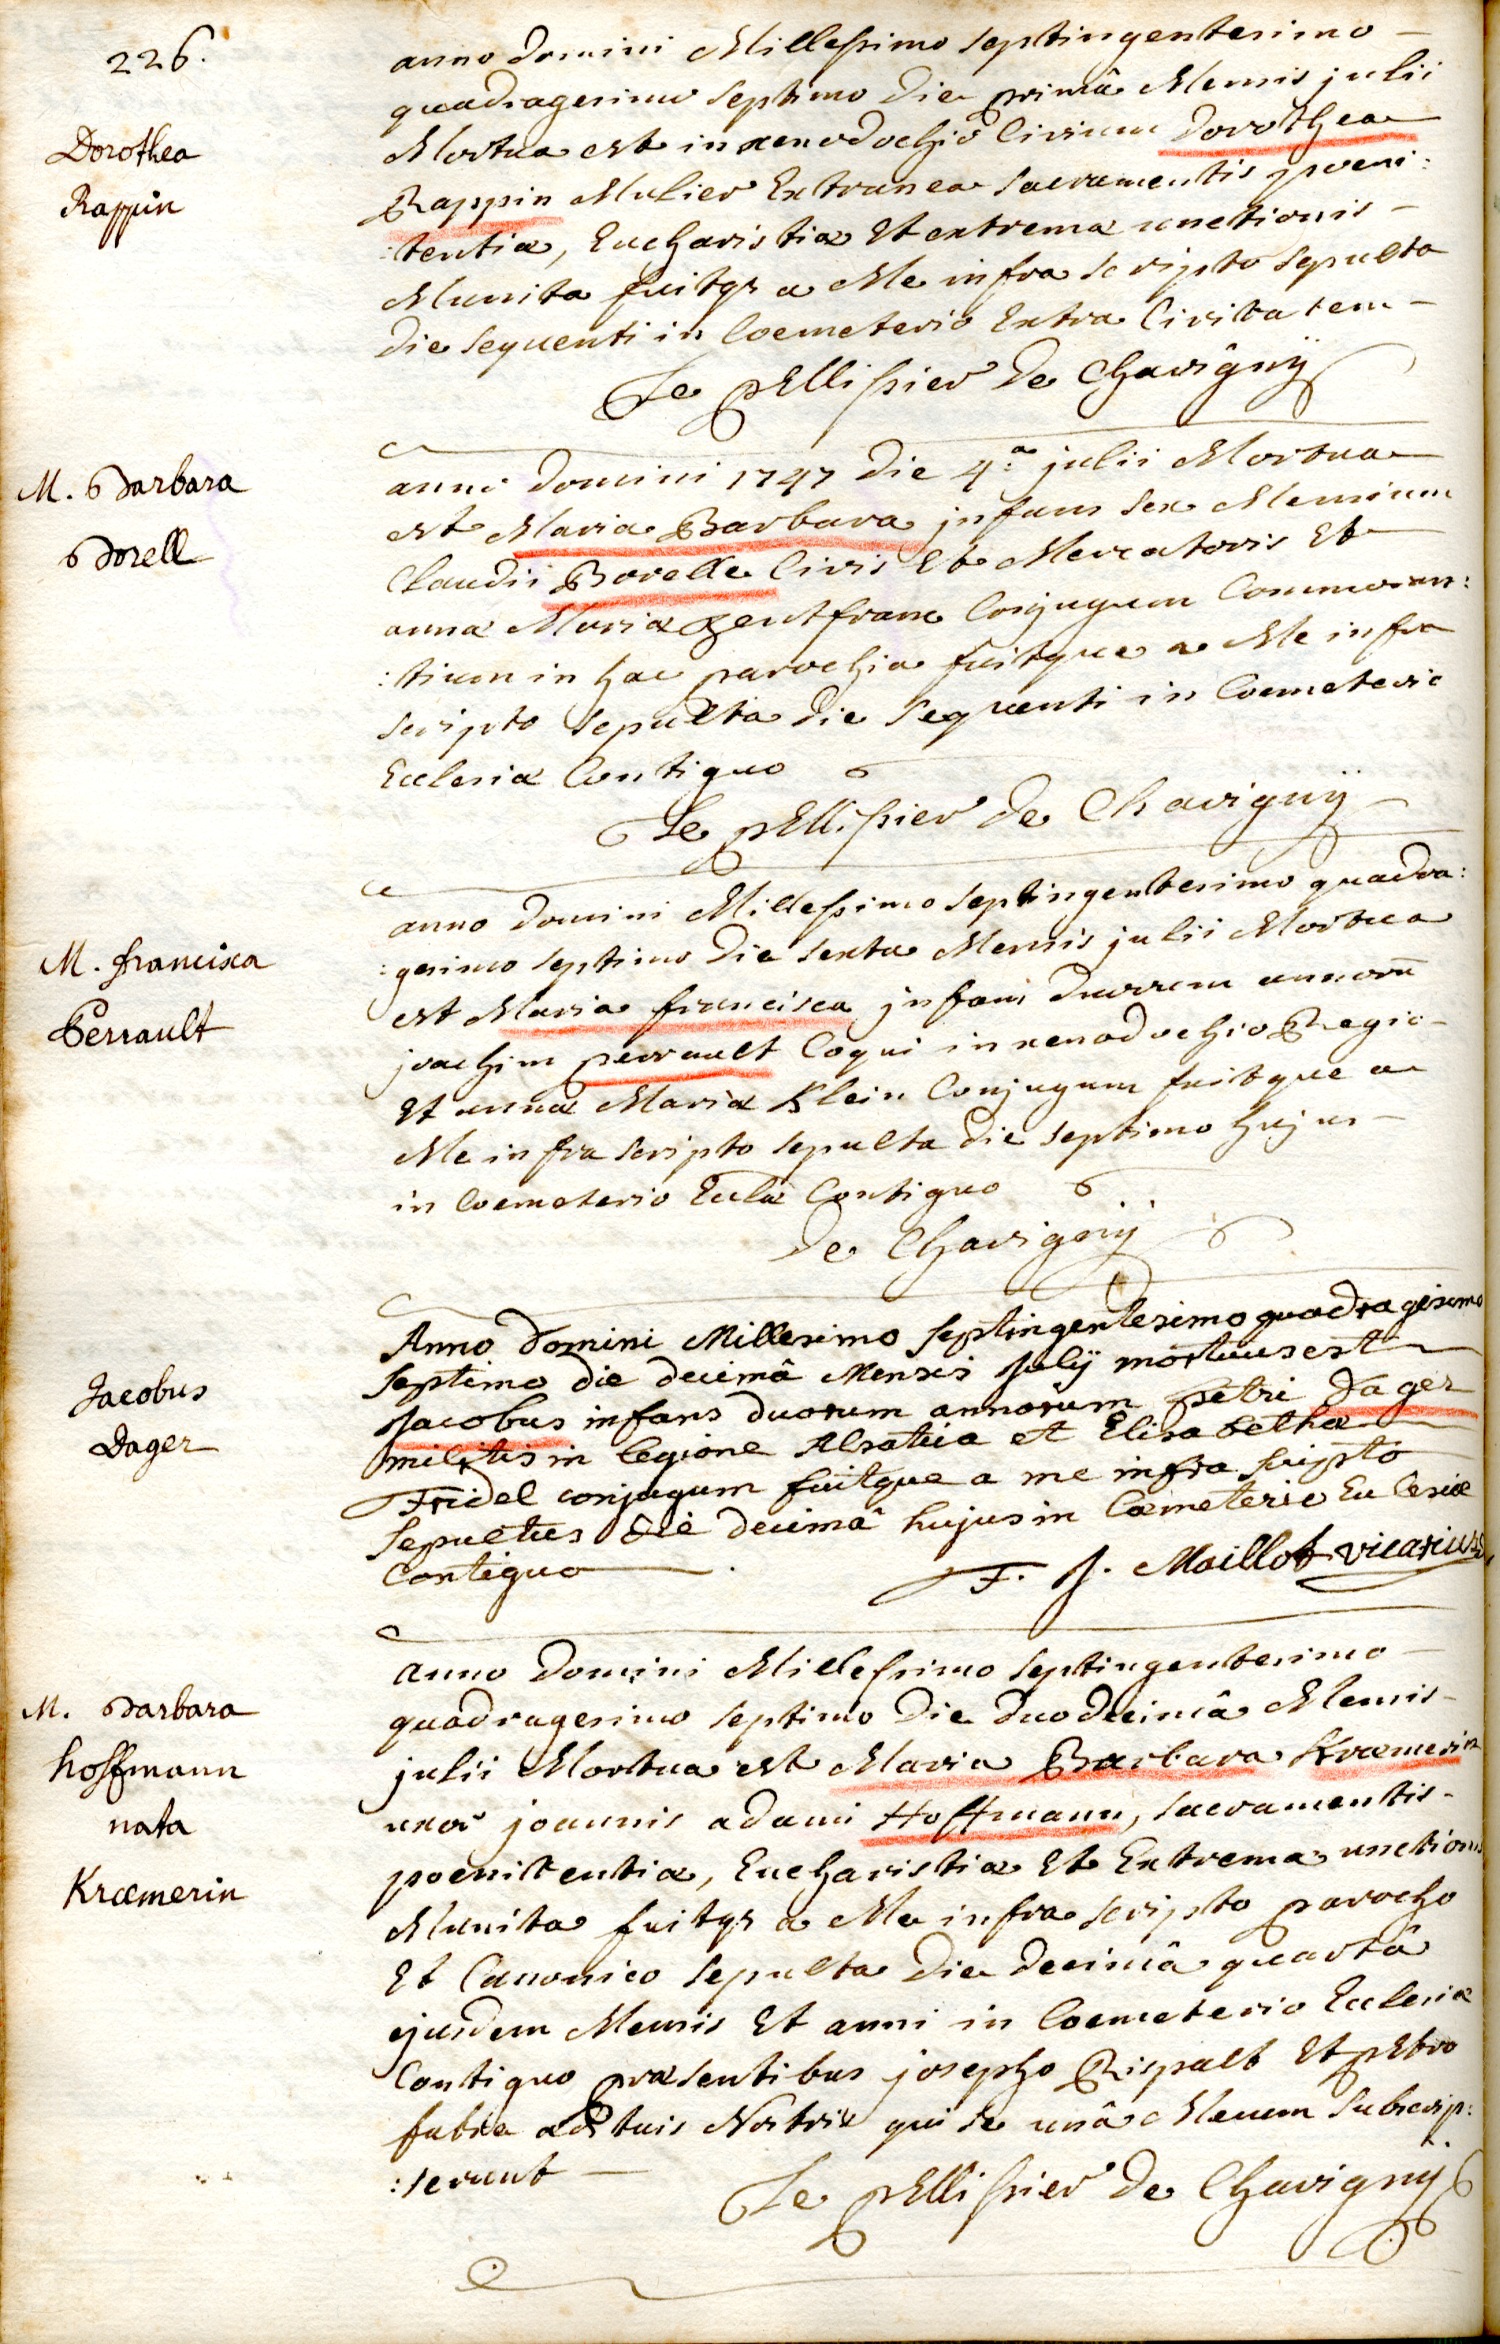 226.
Dorothea
Rappin
anno domini Millessimo septingentesimo -
quadragesimo septimo die primâ Mensis julii
Mortua est in xenodochio Civium Dorothea
Rappin Mulier Extranea sacramentis poeni:
:tentiæ, Eucharistiæ Et extremæ unctionis -
Munita fuitqz a Me infra scripto sepulta
die sequenti in Coemeterio Extra Civitatem -
Le pEllissier De Chavigny
M. Barbara
Borell
anno domini 1747 die 4.a julii Mortua
est Maria Barbara jnfans sex Mensium
Claudii Borelle Civis Et Mercatoris Et
annæ Mariæ Zentfranc Conjugum Commoran:
:tium in hac parochia fuitque a Me infra
scripto sepulta die sequenti in Coemeterio
Ecclesiæ Contiguo
Le pEllissier De Chavigny -
M. francisca
Perrault
anno domini Millessimo septingentesimo quadra:
:gesimo septimo die sexta Mensis julii Mortua
est Maria francisca jnfans duorum annorū
joachim perrault Coqui in xenodochio Regio -
Et annæ Mariæ Klein Conjugum fuitque a
Me infra scripto sepulta die septimo hujus -
in Coemeterio Eculæ Contiguo
De Chavigny
Jacobus
Dager
Anno domini Millesimo septingentesimo quadragesimo
septimo die decimâ Mensis Julÿ mortuus est
Jacobus infans duorum annorum petri Dager
militis in legione Alsatiæ et Elisabethæ
Fridel conjugum fuitque a me infra scripto
sepultus die decimâ hujus in Cæmeterio Ecclesiæ
Contiguo .
F. J. Maillot vicarius
M. Barbara
hoffmann
nata
Kræmerin
anno Domini Millessimo septingentesimo -
quadragesimo septimo Die duodecimâ Mensis -
julii Mortua est Maria Barbara Kræmerin
uxor joannis adami Hoffmann, sacramentis -
poenitentiæ, Eucharistiæ Et Extremæ unctionis
Munita fuitqz a Me infra scripto parocho
Et Canonico sepulta Die decimâ quartâ
ejusdem Mensis Et anni in Coemeterio Ecclesiæ
Contiguo præsentibus josepho Rispalt Et pEtro
fabre ædituis Nostris qui se unâ Mecum subscrip:
:serunt -
Le pEllissier De Chavigny